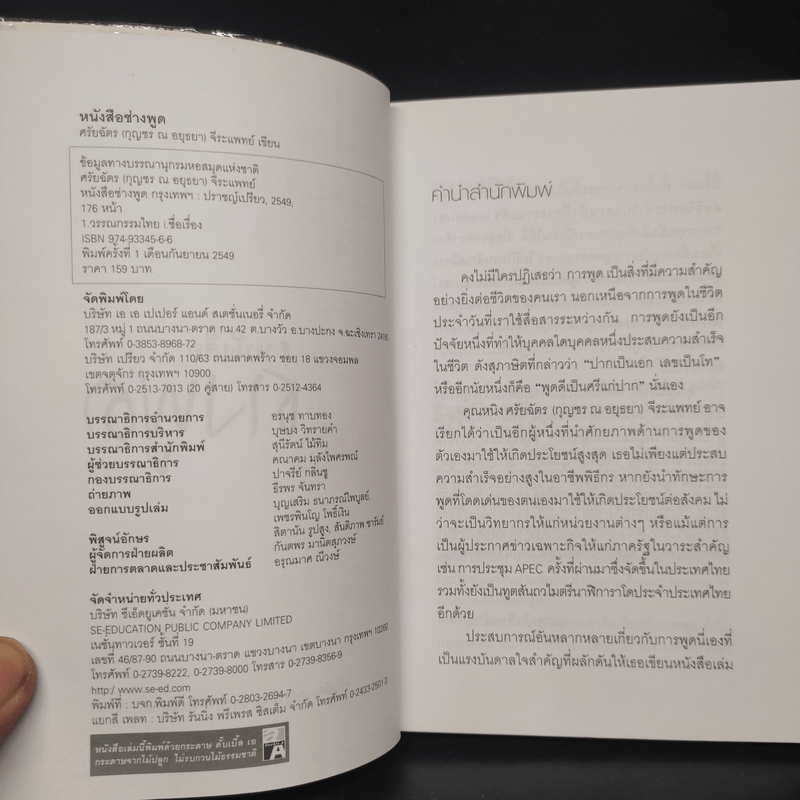 หนังสือช่างพูด
ศรัยฉัตร (กุญชร ณ อยุธยา) จีระแพทย์ เขียน
ข้อมูลทางบรรณานุกรมหอสมุดแห่งชาติ
ศรัยฉัตร (กุญชร ณ อยุธยา) จีระแพทย์
หนังสือช่างพูด กรุงเทพฯ : ปราชญ์เปรียว, 2549,
176 หน้า
1.วรรณกรรมไทย i.ชื่อเรื่อง
ISBN 974-93345-6-6
พิมพ์ครั้งที่ 1 เดือนกันยายน 2549
ราคา 159 บาท
จัดพิมพ์โดย
บริษัท เอ เอ เปเปอร์ แอนด์ สเตชั่นเนอรี่ จำกัด
187/3 หมู่ 1 ถนนบางนา-ตราด กม.42 ต.บางวัว อ.บางปะกง จ.ฉะเชิงเทรา 24180
โทรศัพท์ 0-3853-8968-72
บริษัท เปรียว จำกัด 110/63 ถนนลาดพร้าว ซอย 18 แขวงจอมพล
เขตจตุจักร กรุงเทพฯ 10900
โทรศัพท์ 0-2513-7013 (20 คู่สาย) โทรสาร 0-2512-4364
บรรณาธิการอำนวยการ อรนุช ทาบทอง
บรรณาธิการบริหาร บุษบง วิทรายคำ
บรรณาธิการสำนักพิมพ์ สุนีรัตน์ ไม้ทิม
ผู้ช่วยบรรณาธิการ คณาคม มุลังไพศรพณ์
กองบรรณาธิการ ปาจรีย์ กลิ่นชู
ถ่ายภาพ ธีรพร จันทรา
ออกแบบรูปเล่ม บุญเสริม ธนาภรณ์ไพบูลย์,
เพชรพินโญ โพธิ์เงิน
พิสูจน์อักษร สิตานัน รูปสูง, สันติภาพ ชารัมย์
ผู้จัดการฝ่ายผลิต กันตพร มานิตสุภวงษ์
ฝ่ายการตลาดและประชาสัมพันธ์ อรุณมาศ ณีวงษ์
จัดจำหน่ายทั่วประเทศ
บริษัท ซีเอ็ดยูเคชั่น จำกัด (มหาชน)
SE-EDUCATION PUBLIC COMPANY LIMITED
เนชั่นทาวเวอร์ ชั้นที่ 19
เลขที่ 46/87-90 ถนนบางนา-ตราด แขวงบางนา เขตบางนา กรุงเทพฯ 10260
โทรศัพท์ 0-2739-8222, 0-2739-8000 โทรสาร 0-2739-8356-9
http:/ www.se-ed.com
พิมพ์ที่ : บจก.พิมพ์ดี โทรศัพท์ 0-2803-2694-7
แยกสี เพลท : บริษัท รันนิ่ง พรีเพรส ซิสเต็ม จำกัด โทรศัพท์ 0-2433-2501-3
หนังสือเล่มนี้พิมพ์ด้วยกระดาษ ดั๊บเบิ้ล เอ
กระดาษจากไม้ปลูก ไม่รบกวนไม้ธรรมชาติ
คำนำสำนักพิมพ์
คงไม่มีใครปฏิเสธว่า การพูด เป็นสิ่งที่มีความสำคัญ
อย่างยิ่งต่อชีวิตของคนเรา นอกเหนือจากการพูดในชีวิต
ประจำวันที่เราใช้สื่อสารระหว่างกัน การพูดยังเป็นอีก
ปัจจัยหนึ่งที่ทำให้บุคคลใดบุคคลหนึ่งประสบความสำเร็จ
ในชีวิต ดังสุภาษิตที่กล่าวว่า “ปากเป็นเอก เลขเป็นโท”
หรืออีกนัยหนึ่งก็คือ “พูดดีเป็นศรีแก่ปาก” นั่นเอง
คุณหนิง ศรัยฉัตร (กุญชร ณ อยุธยา) จีระแพทย์ อาจ
เรียกได้ว่าเป็นอีกผู้หนึ่งที่นำศักยภาพด้านการพูดของ
ตัวเองมาใช้ให้เกิดประโยชน์สูงสุด เธอไม่เพียงแต่ประสบ
ความสำเร็จอย่างสูงในอาชีพพิธีกร หากยังนำทักษะการ
พูดที่โดดเด่นของตนเองมาใช้ให้เกิดประโยชน์ต่อสังคม ไม่
ว่าจะเป็นวิทยากรให้แก่หน่วยงานต่างๆ หรือแม้แต่การ
เป็นผู้ประกาศข่าวเฉพาะกิจให้แก่ภาครัฐในวาระสำคัญ
เช่น การประชุม APEC ครั้งที่ผ่านมาซึ่งจัดขึ้นในประเทศไทย
รวมทั้งยังเป็นทูตสันถวไมตรีนาฬิการาโดประจำประเทศไทย
อีกด้วย
ประสบการณ์อันหลากหลายเกี่ยวกับการพูดนี่เองที่
เป็นแรงบันดาลใจสำคัญที่ผลักดันให้เธอเขียนหนังสือเล่ม